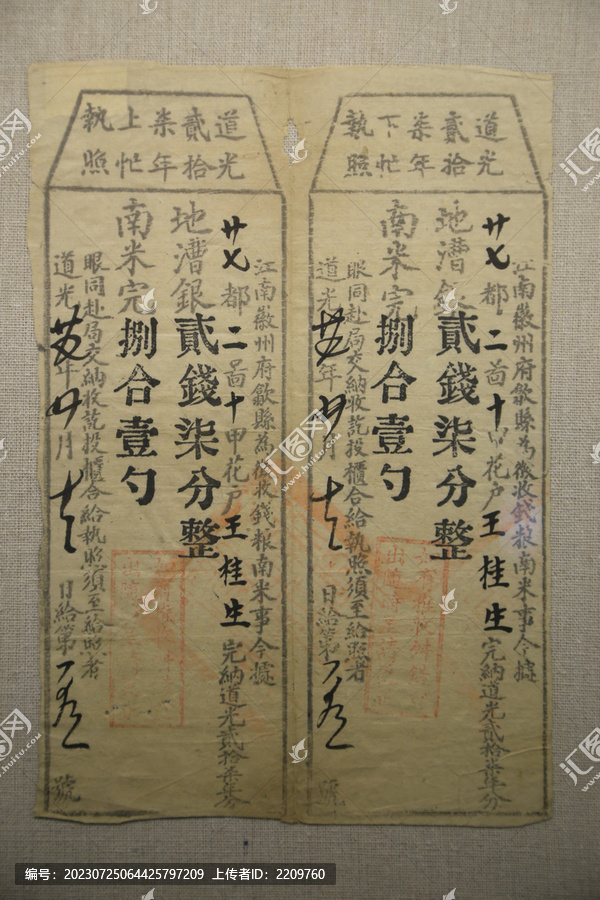 道光
貳拾
柒年
下忙
執照
江南徽州府歙縣為徵收錢糧南米事今據
廿七都二啚十甲花戶王桂生完納道光貳拾柒年分
地漕銀貳錢柒分整
南米完捌合壹勺
眼同赴局交納收訖投櫃合給執照須至給照者
道光 年 月 日給第 號
道光
貳拾
柒年
上忙
執照
江南徽州府歙縣為徵收錢糧南米事今據
廿七都二啚十甲花戶王桂生完納道光貳拾柒年分
地漕銀貳錢柒分整
南米完捌合壹勺
眼同赴局交納收訖投櫃合給執照須至給照者
道光 年 月 日給第 號
编号：20230725064425797209 上传者ID：2209760
汇图网